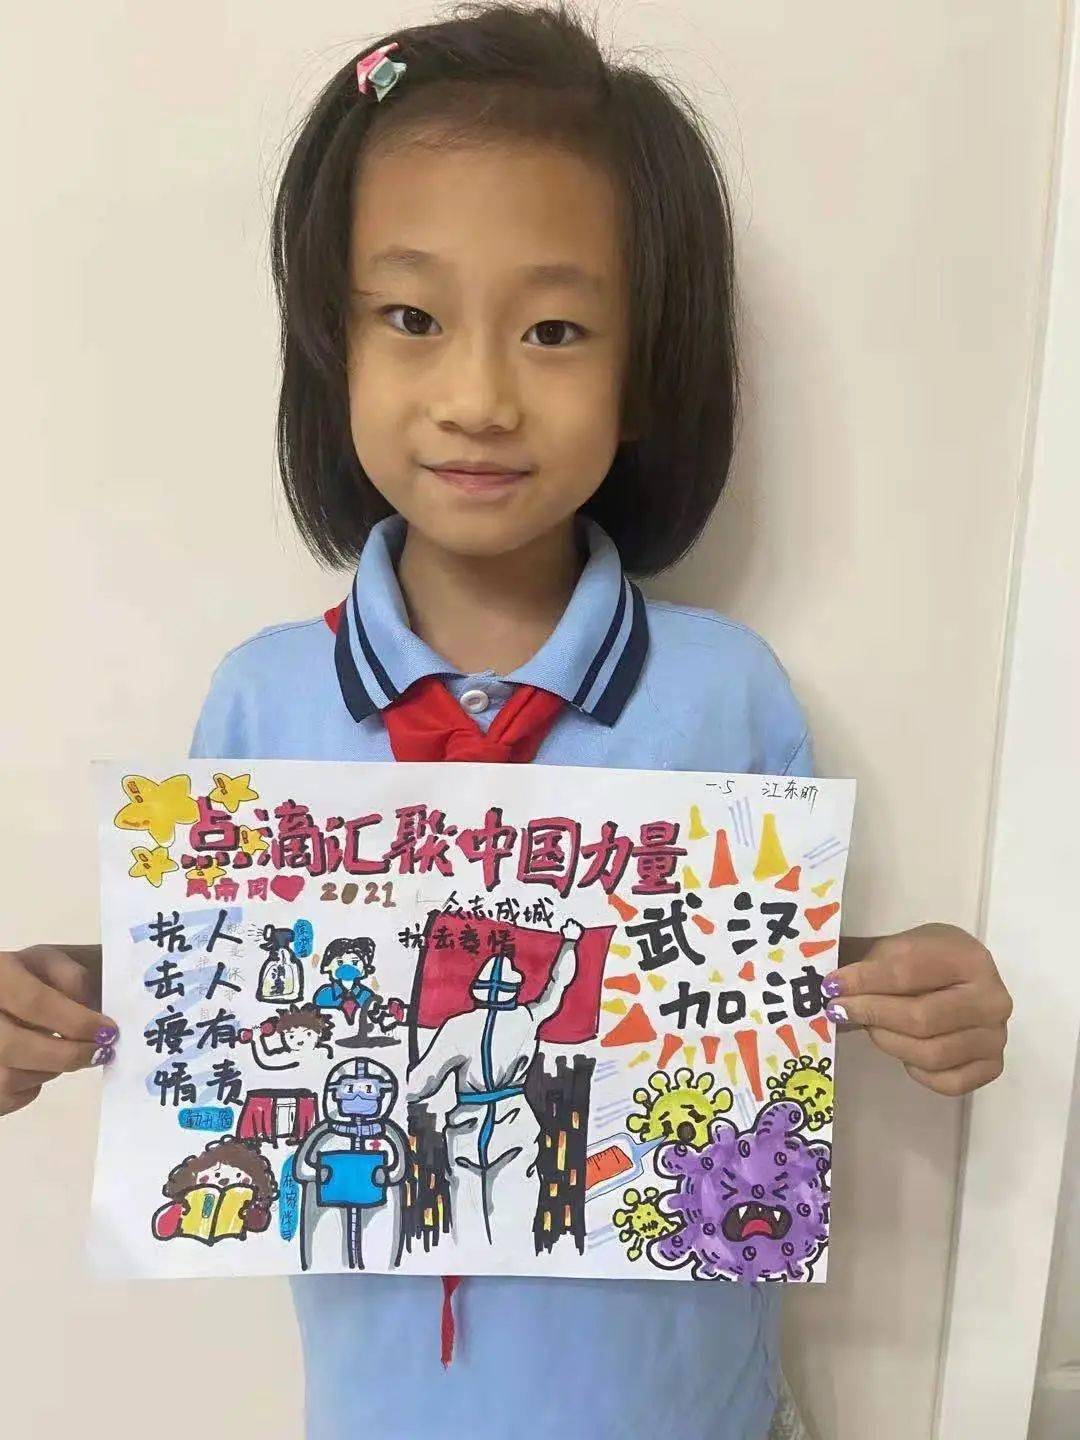 一.5 江东昕
点滴汇聚中国力量
风雨同
2021
众志成城
抗击疫情
武汉
加油
抗击疫情
人人有责
消毒